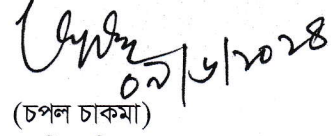 ০৯/৬/২০২৪
(চপল চাকমা)